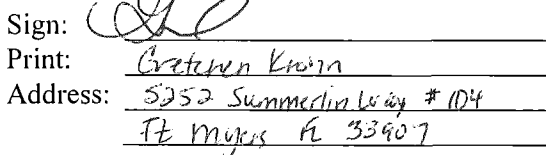 Sign:
Print: Gretchen
Address: 5252 Summerlin Way # 104
Ft Myers FL 33907